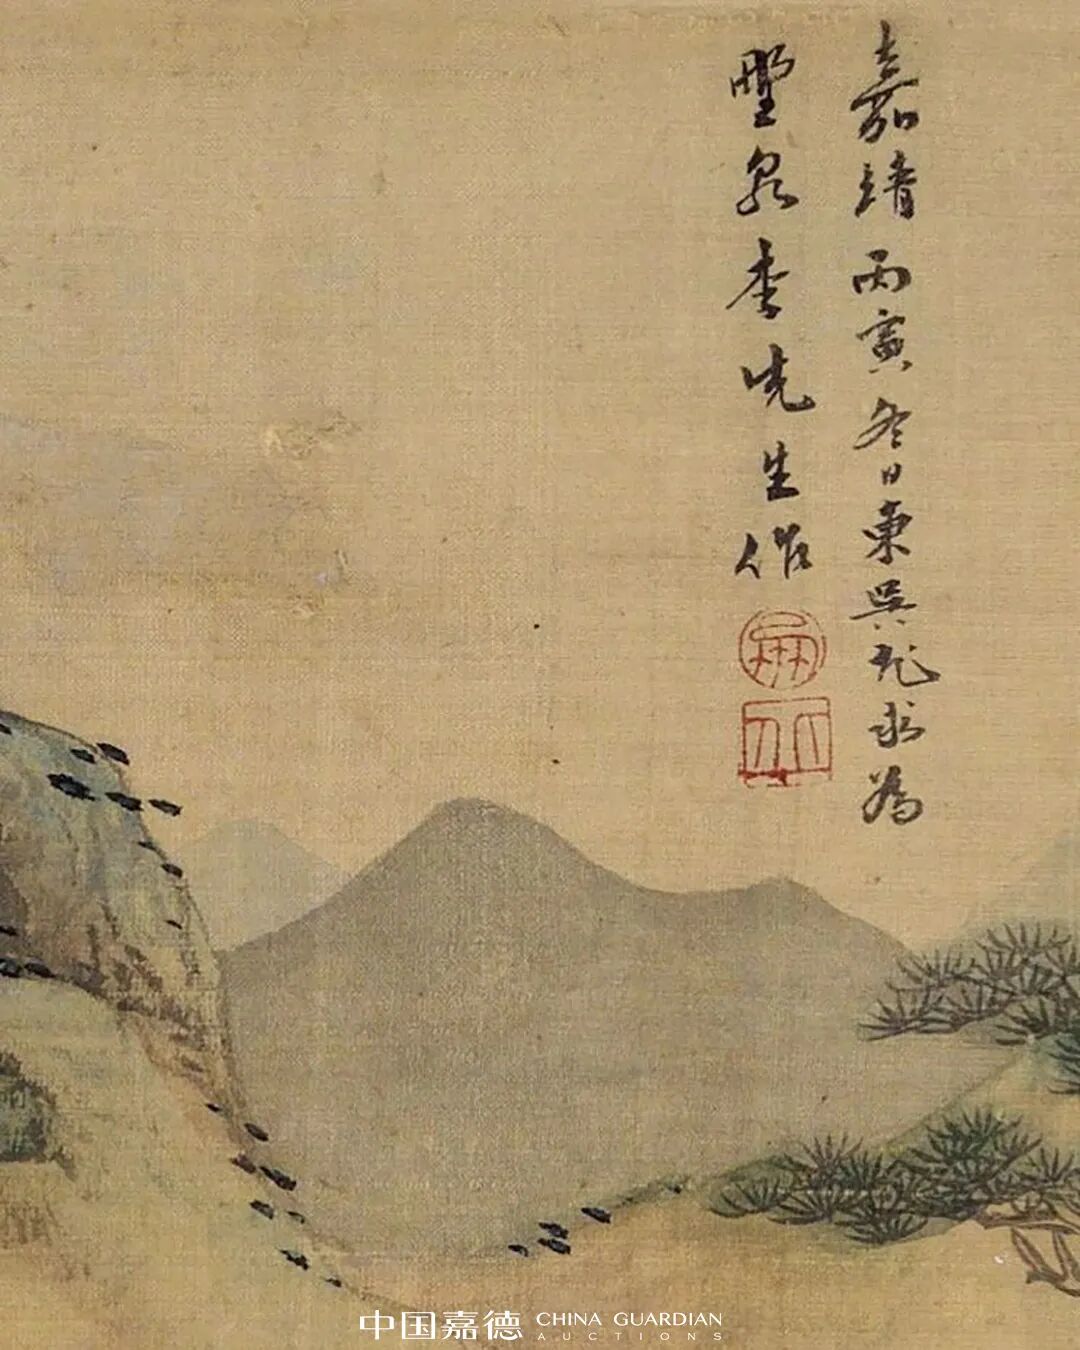 嘉靖丙寅冬日東吳尤求為
墅泉李先生作
中国嘉德 CHINA GUARDIAN
AUCTIONS